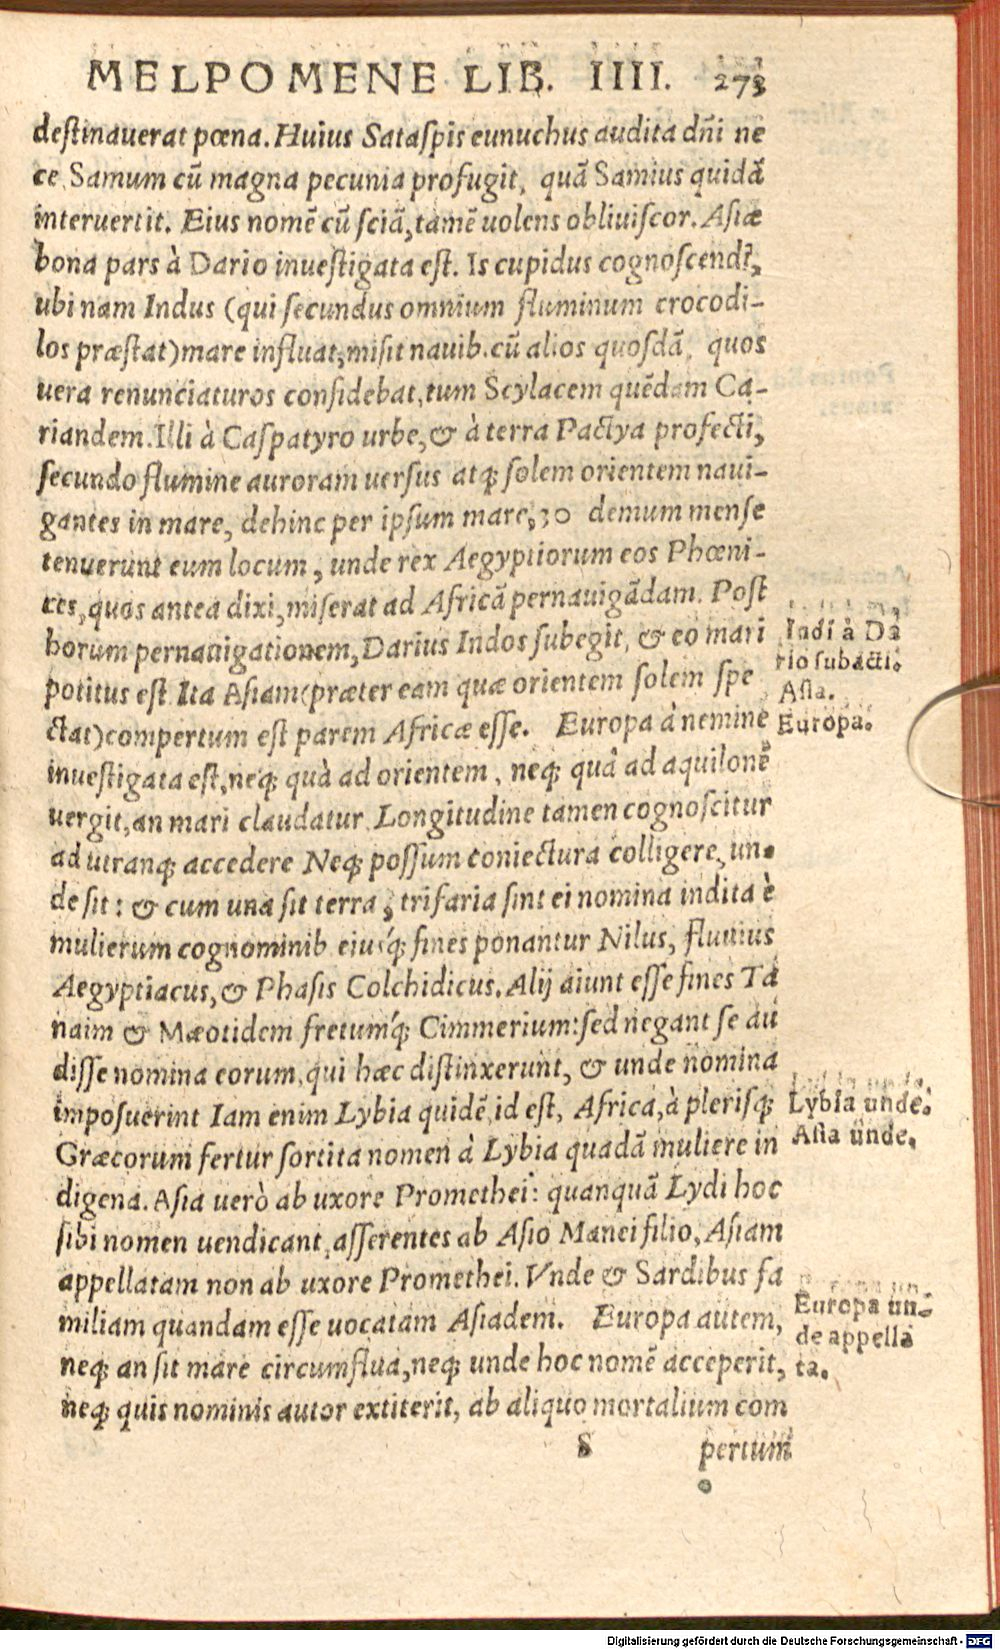 MELPOMENE LIB. IIII. 273
destinauerat pœna. Huius Sataſpis eunuchus audita dñi ne
ce, Samum cũ magna pecunia profugit, quã Samius quidã
interuertit. Eius nomẽ cũ ſciã, tamẽ uolens obliuiſcor. Aſiæ
bona pars à Dario inueſtigata eſt. Is cupidus cognoſcendi,
ubi nam Indus (qui ſecundus omnium fluminum crocodi-
los præſtat) mare influat, miſit nauib. cũ alios quoſdã, quos
uera renunciaturos conſidebat, tum Scylacem quẽdam Ca-
riandem. Illi à Caſpatyro urbe, & à terra Pactya profecti,
ſecundo flumine auroram uerſus atq; ſolem orientem naui-
gantes in mare, dehinc per ipſum mare, 30 demum menſe
tenuerunt eum locum, unde rex Aegyptiorum eos Phœni-
ces, quos antea dixi, miſerat ad Africã pernauigãdam. Poſt
horum pernauigationem, Darius Indos ſubegit, & eo mari
potitus eſt. Ita Aſiam (præter eam quæ orientem ſolem ſpe
ctat) compertum eſt parem Africæ eſſe. Europa à nemine
inueſtigata eſt, neq; quà ad orientem, neq; quà ad aquilonẽ
uergit, an mari claudatur. Longitudine tamen cognoſcitur
ad utranq; accedere Neq; poſſum coniectura colligere, un-
de ſit: & cum una ſit terra, trifaria ſint ei nomina indita è
mulierum cognominib eiuſq́; fines ponantur Nilus, fluuius
Aegyptiacus, & Phaſis Colchidicus. Alij aiunt eſſe fines Ta
naim & Mæotidem fretumq́; Cimmerium: ſed negant ſe au
diſſe nomina eorum, qui hæc diſtinxerunt, & unde nomina
impoſuerint Iam enim Lybia quidẽ, id eſt, Africa, à pleriſq;
Græcorum fertur ſortita nomen à Lybia quadã muliere in
digena. Aſia uerò ab uxore Promethei: quanquã Lydi hoc
ſibi nomen uendicant, aſſerentes ab Aſio Manei filio, Aſiam
appellatam non ab uxore Promethei. Vnde & Sardibus fa
miliam quandam eſſe uocatam Aſiadem. Europa autem,
neq; an ſit mare circumflua, neq; unde hoc nomẽ acceperit,
neq; quis nominis autor extiterit, ab aliquo mortalium com
S pertum
Indi à Da
rio ſubacti.
Aſia.
Europa.
Lybia unde.
Aſia unde.
Europa un-
de appella
ta.
Digitalisierung gefördert durch die Deutsche Forschungsgemeinschaft - DFG